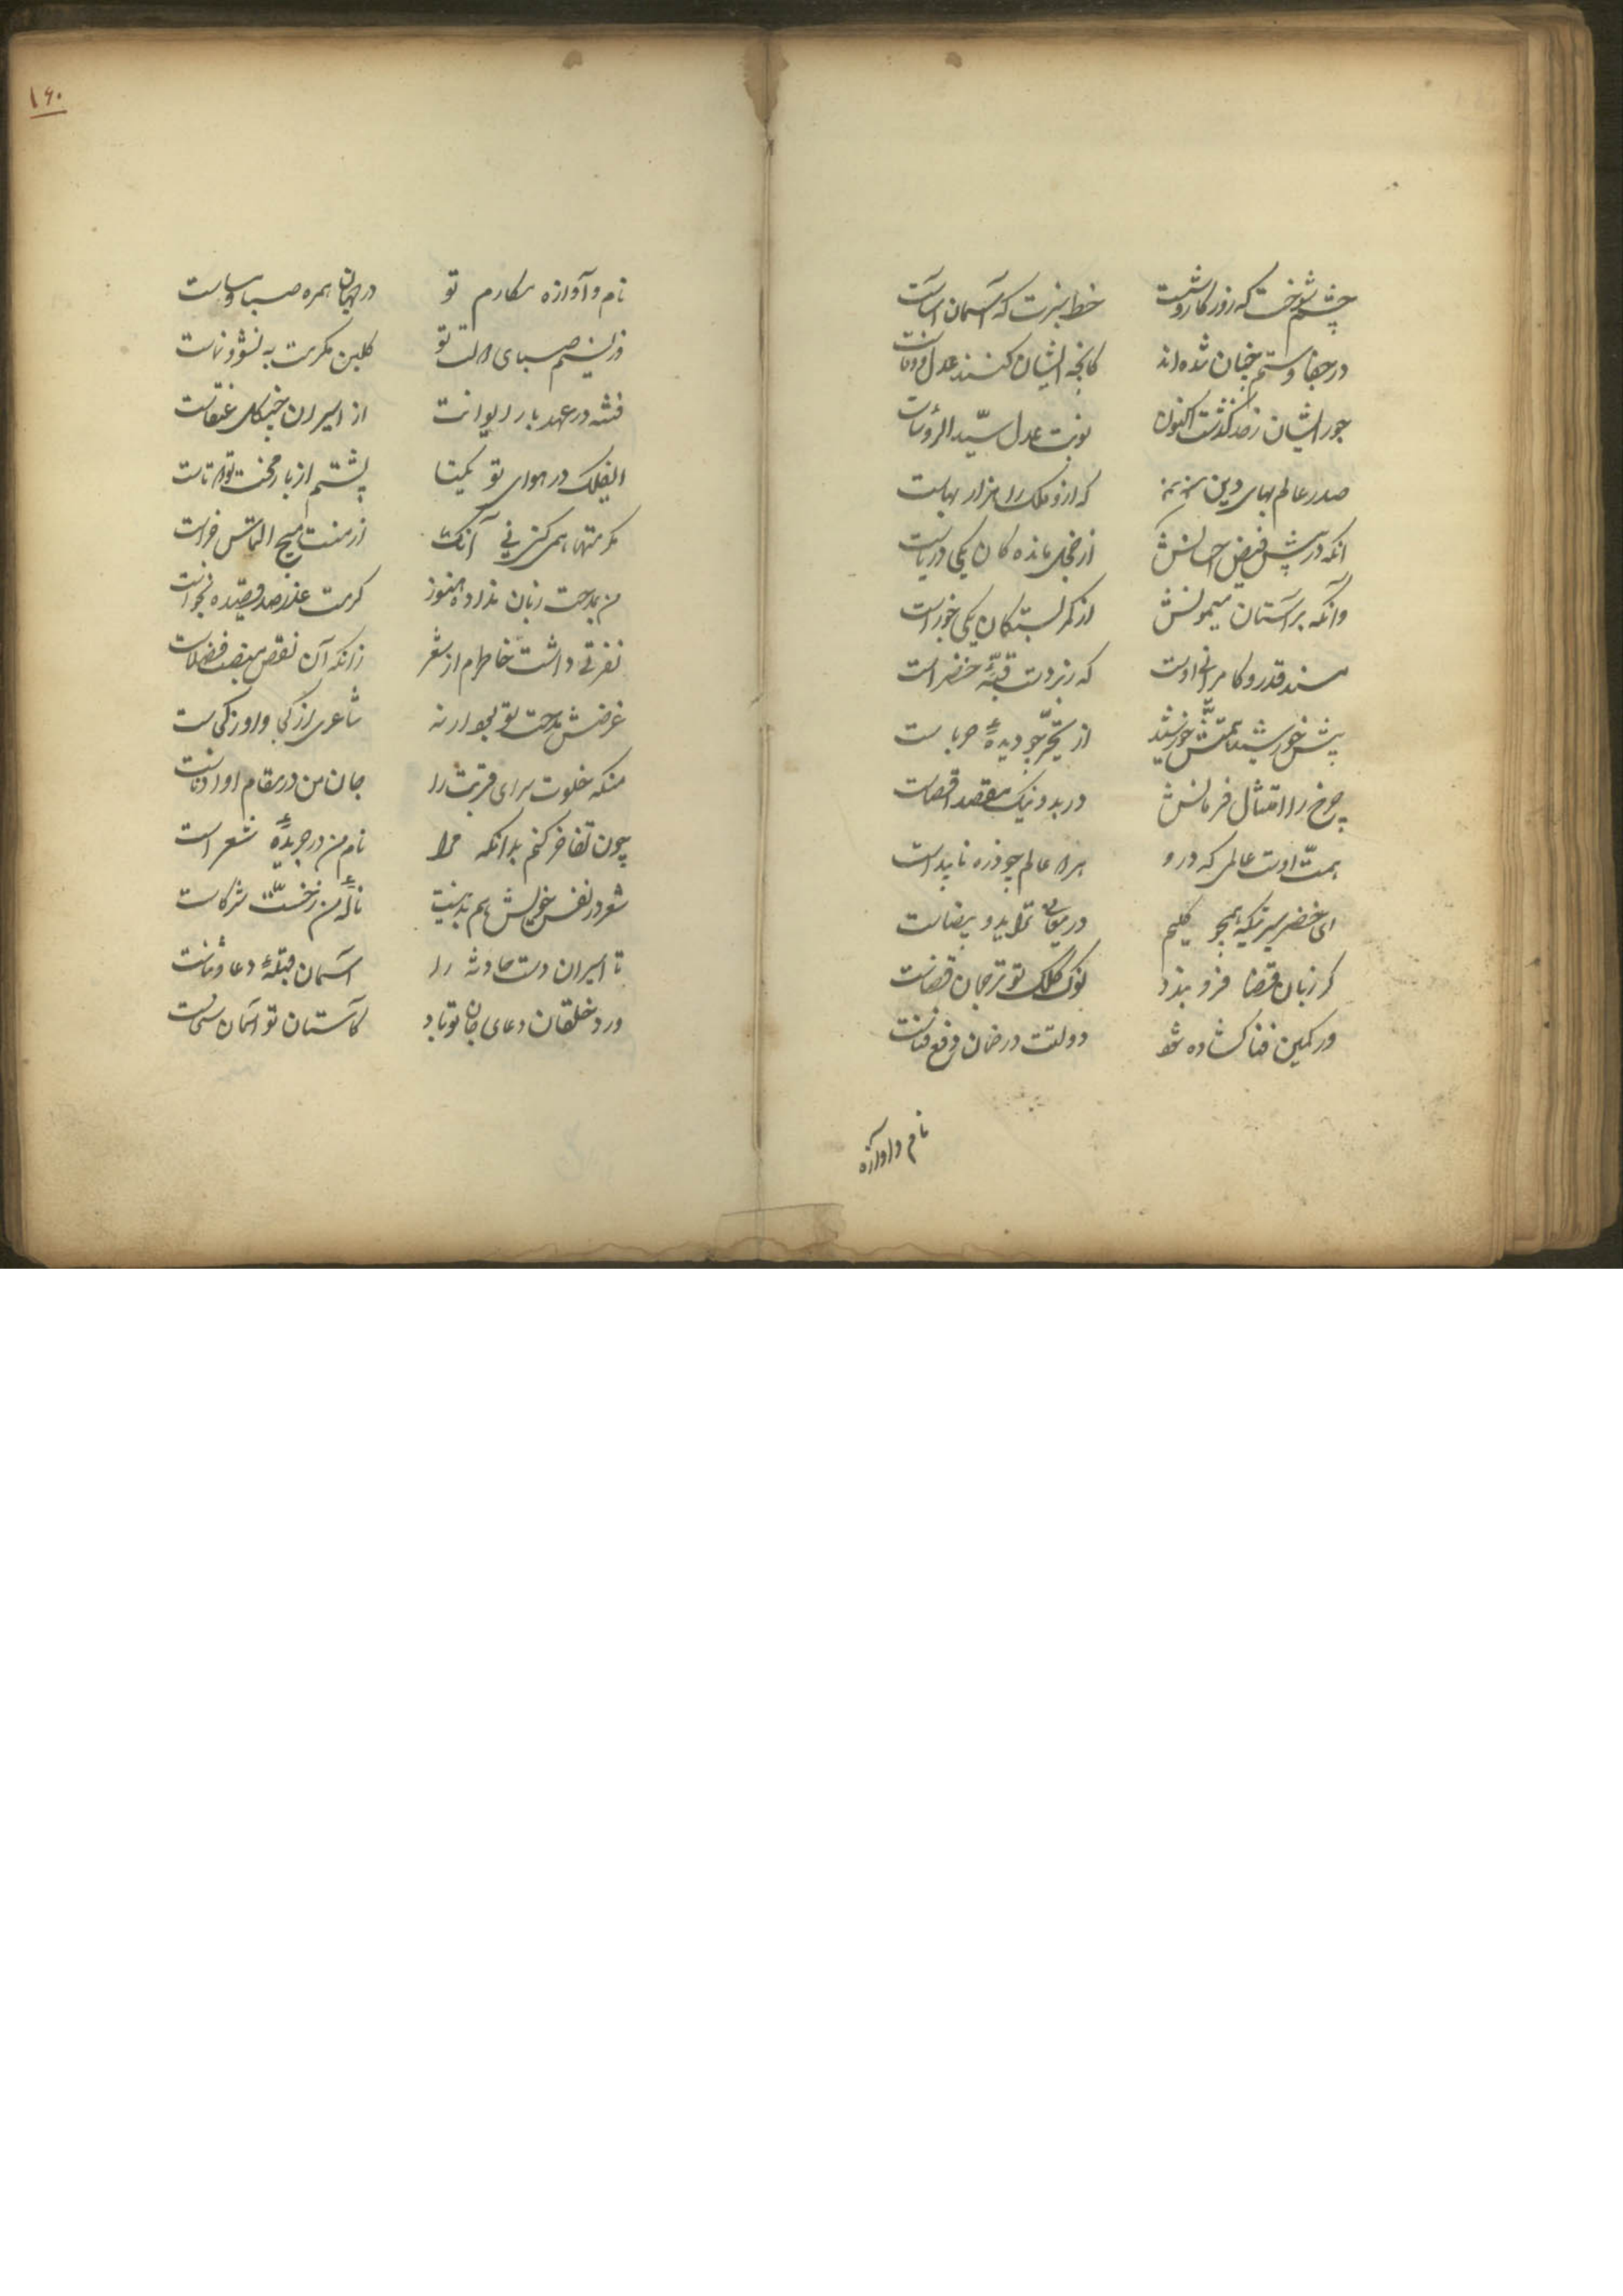 چشم شوخت که روزگار وشست خط سبزت که آسمان آساست
در جفا و ستم چنان شده‌اند کانچه ایشان کنند عدل و وفاست
جور ایشان ز حد گذشت اکنون نوبت عدل سید الرؤساست
صدر عالم بهای دین که ازو ملک را هزار بهاست
انکه در پیش فیض احسانش از خجل مانده کان یکی دریاست
وانکه بر آستان میمونش از کمر بستگان یکی جوزاست
مسند قدر و کامرانی اوست که زبردست قبهٔ خضراست
پیش خورشید همتش خورشید از تحیر چو دیدهٔ حرباست
چرخ را امتثال فرمانش در بد و نیک مقصد اقصاست
همت اوست عالمی که درو هر دو عالم چو ذره ناپیداست
ای خضر سیرتی که همچو کلیم در بیضاست
گر زبان قضا فرو بندد نوک کلک تو ترجمان قضاست
ور کمین فنا گشاده شود دولتت در ضمان دفع فناست
نام و آوازه
۱۶۰
نام و آوازه مکارم تو در جهان همره صبا و مساست
وز نسیم صبای دولت تو گلبن مکرمت به نشو و نماست
فتنه در عهد بار ایوانت از اسیران چنگل عنقاست
الف فلک در هوای تو یکتا پشتم از بار محنت تو دوتاست
مکرمتها همی کنی نی آنک از منت هیچ التماس فراست
من بمدحت زبان نداده هنوز کرمت عذر صد قصیده بخواست
نفرتی داشت خاطرم از شعر زانکه آن نقص منصب فضلاست
غرضش مدحت تو بود ارنه شاعری از کجا و او ز کجاست
منکه خلوت سرای قربت را جان من در مقام او ادناست
چون تفاخر کنم بدانکه مرا نام من در جریدهٔ شعراست
شعر در نفس خویش هم بد نیست نالهٔ من ز خست شرکاست
تا اسیران دست حادثه را آسمان قبلهٔ دعا و ثناست
ورد خلقان دعای جان تو باد کآستان تو آسمان سخاست